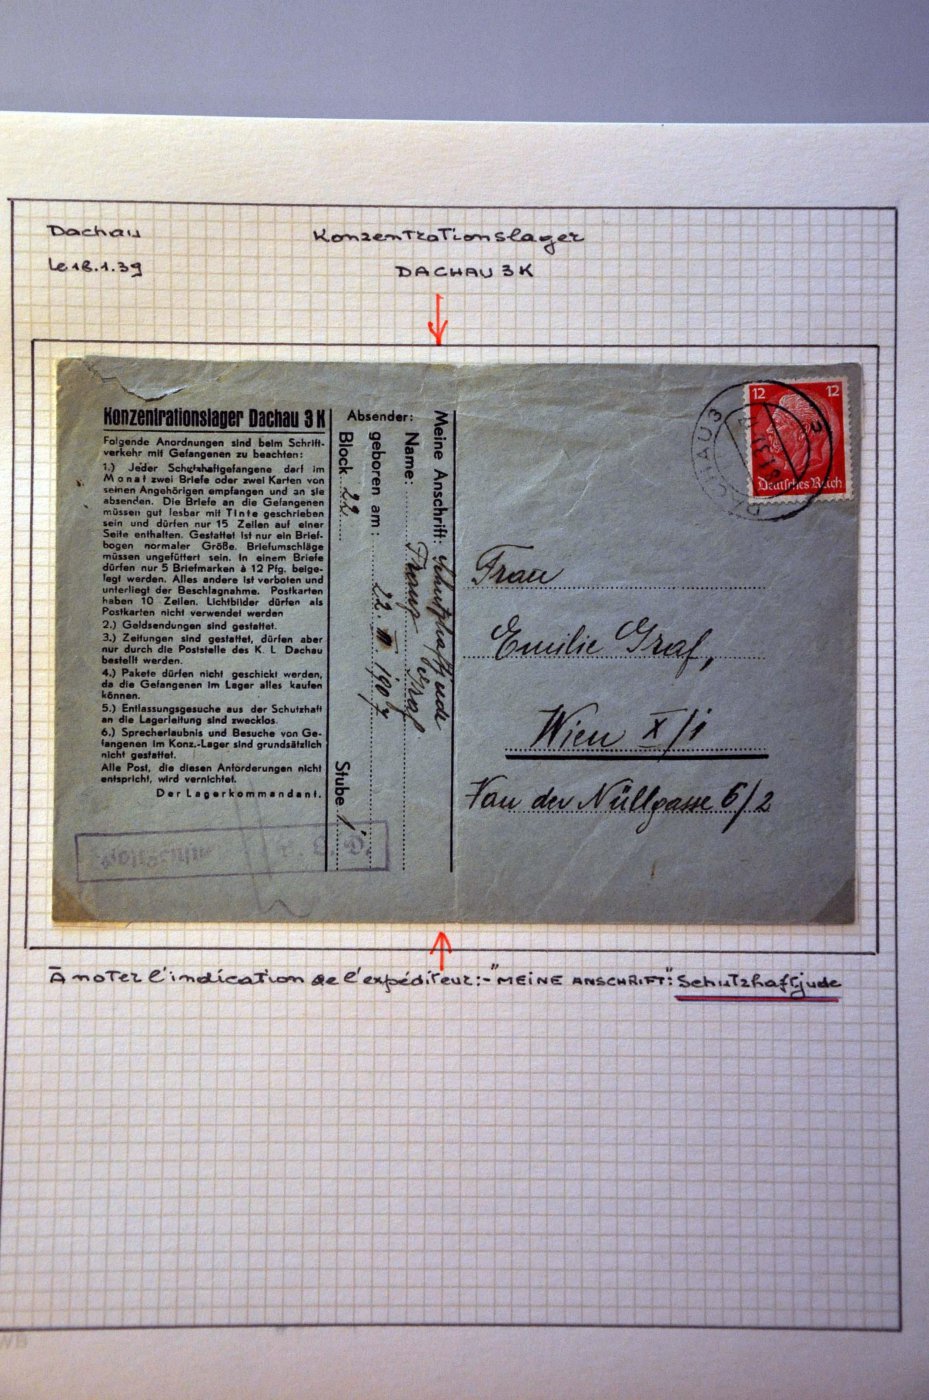 Dachau
Konzentrationslager
le 18.1.39
DACHAU 3 K
Konzentrationslager Dachau 3 K
Folgende Anordnungen sind beim Schrift-
verkehr mit Gefangenen zu beachten:
1.) Jeder Schutzhaftgefangene darf im
Monat zwei Briefe oder zwei Karten von
seinen Angehörigen empfangen und an sie
absenden. Die Briefe an die Gefangenen
müssen gut lesbar mit Tinte geschrieben
sein und dürfen nur 15 Zeilen auf einer
Seite enthalten. Gestattet ist nur ein Brief-
bogen normaler Größe. Briefumschläge
müssen ungefüttert sein. In einem Briefe
dürfen nur 5 Briefmarken à 12 Pfg. beige-
legt werden. Alles andere ist verboten und
unterliegt der Beschlagnahme. Postkarten
haben 10 Zeilen. Lichtbilder dürfen als
Postkarten nicht verwendet werden
2.) Geldsendungen sind gestattet.
3.) Zeitungen sind gestattet, dürfen aber
nur durch die Poststelle des K. L. Dachau
bestellt werden.
4.) Pakete dürfen nicht geschickt werden,
da die Gefangenen im Lager alles kaufen
können.
5.) Entlassungsgesuche aus der Schutzhaft
an die Lagerleitung sind zwecklos.
6.) Sprecherlaubnis und Besuche von Ge-
fangenen im Konz.-Lager sind grundsätzlich
nicht gestattet.
Alle Post, die diesen Anforderungen nicht
entspricht, wird vernichtet.
Der Lagerkommandant.
Absender:
Meine Anschrift: Schutzhaftjude
Name: Franz Graf
geboren am: 22. III. 1907
Block 22 Stube 1
DACHAU 3
12 12
Deutsches Reich
Frau
Emilie Graf,
Wien X/1
Van der Nüllgasse 6/2
À noter l'indication de l'expéditeur:-"MEINE ANSCHRIFT": Schutzhaftjude